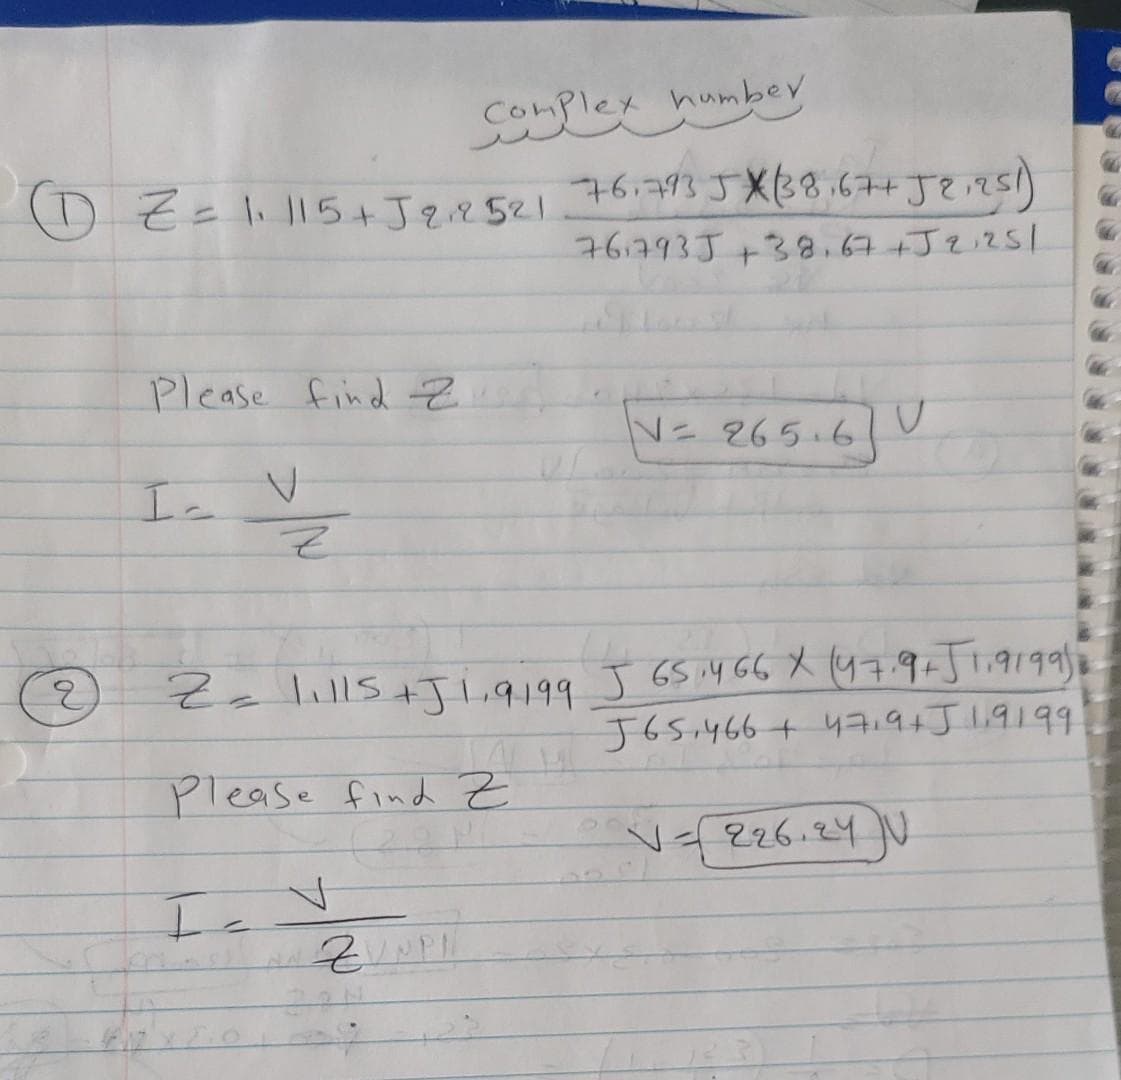 Complex number
① Z = 1.115 + J2.2521 76.793 J X (38.67 + J2.251)
76.793J + 38.67 + J2.251
Please find Z
V = 265.6 V
I = V
Z
② Z = 1.115 + J1.9199 J 65.466 X (47.9 + J1.9199)
J65.466 + 47.9 + J1.9199
Please find Z
V = 226.24 V
I = V
Z